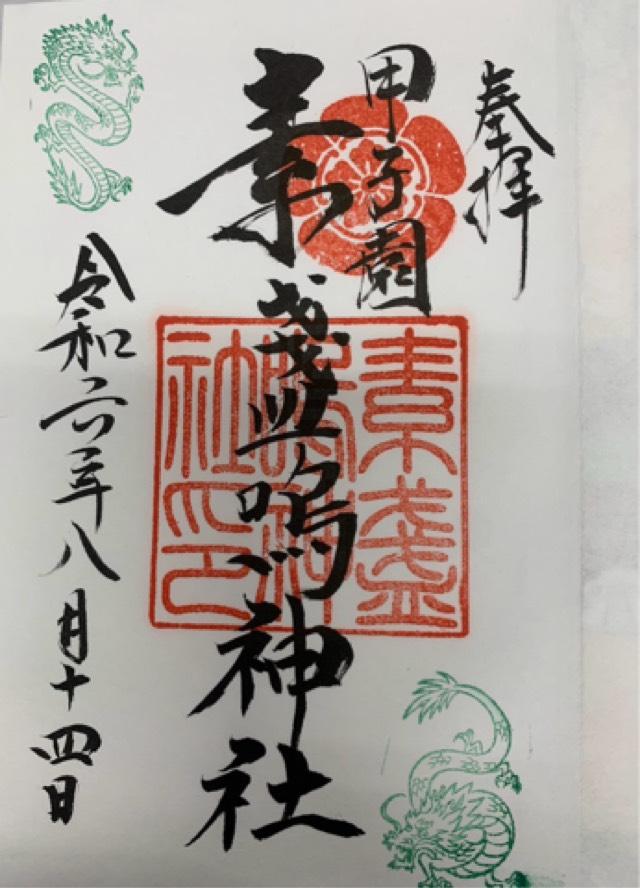 奉拝
甲子園
素盞嗚神社
素盞
嗚神
社印
令和六年八月十四日